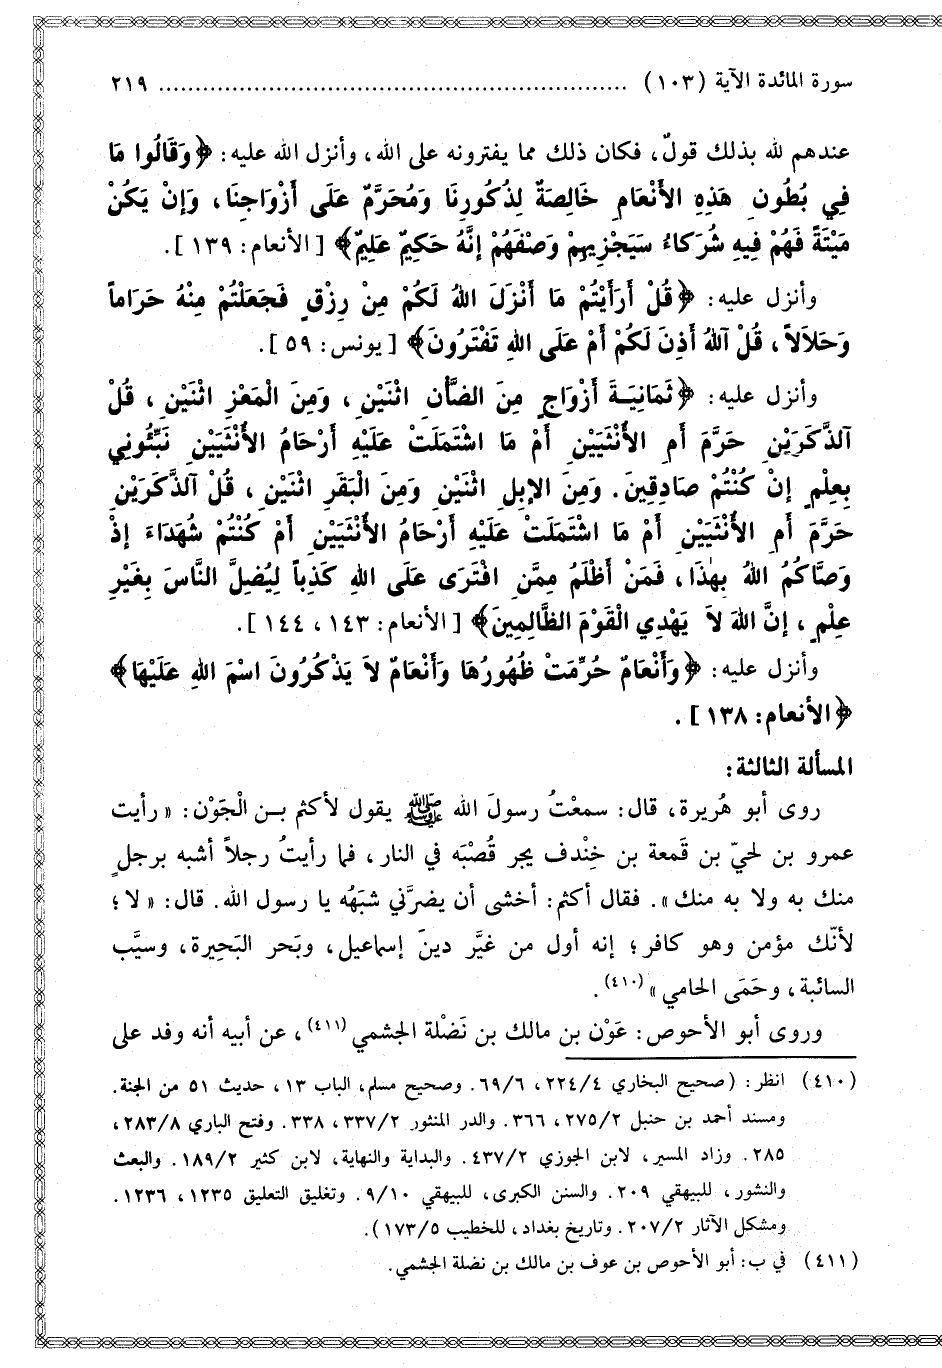 سورة المائدة الآية (١٠٣) ................................................................ ٢١٩
عندهم لله بذلك قولٌ، فكان ذلك مما يفترونه على الله، وأنزل الله عليه: ﴿وَقَالُوا مَا
فِي بُطُونِ هَذِهِ الأَنْعَامِ خَالِصَةٌ لِذُكُورِنَا وَمُحَرَّمٌ عَلَى أَزْوَاجِنَا، وَإِنْ يَكُنْ
مَيْتَةً فَهُمْ فِيهِ شُرَكَاءُ سَيَجْزِيهِمْ وَصْفَهُمْ إِنَّهُ حَكِيمٌ عَلِيمٌ﴾ [الأنعام: ١٣٩].
وأنزل عليه: ﴿قُلْ أَرَأَيْتُمْ مَا أَنْزَلَ اللهُ لَكُمْ مِنْ رِزْقٍ فَجَعَلْتُمْ مِنْهُ حَرَاماً
وَحَلَالاً، قُلْ آللهُ أَذِنَ لَكُمْ أَمْ عَلَى اللهِ تَفْتَرُونَ﴾ [يونس: ٥٩].
وأنزل عليه: ﴿ثَمَانِيَةَ أَزْوَاجٍ مِنَ الضَّأْنِ اثْنَيْنِ، وَمِنَ الْمَعْزِ اثْنَيْنِ، قُلْ
آلذَّكَرَيْنِ حَرَّمَ أَمِ الأُنْثَيَيْنِ أَمْ مَا اشْتَمَلَتْ عَلَيْهِ أَرْحَامُ الأُنْثَيَيْنِ نَبِّئُونِي
بِعِلْمٍ إِنْ كُنْتُمْ صَادِقِينَ. وَمِنَ الإِبِلِ اثْنَيْنِ وَمِنَ الْبَقَرِ اثْنَيْنِ، قُلْ آلذَّكَرَيْنِ
حَرَّمَ أَمِ الأُنْثَيَيْنِ أَمْ مَا اشْتَمَلَتْ عَلَيْهِ أَرْحَامُ الأُنْثَيَيْنِ أَمْ كُنْتُمْ شُهَدَاءَ إِذْ
وَصَّاكُمُ اللهُ بِهٰذَا، فَمَنْ أَظْلَمُ مِمَّنِ افْتَرَى عَلَى اللهِ كَذِباً لِيُضِلَّ النَّاسَ بِغَيْرِ
عِلْمٍ، إِنَّ اللهَ لاَ يَهْدِي الْقَوْمَ الظَّالِمِينَ﴾ [الأنعام: ١٤٣، ١٤٤].
وأنزل عليه: ﴿وَأَنْعَامٌ حُرِّمَتْ ظُهُورُهَا وَأَنْعَامٌ لاَ يَذْكُرُونَ اسْمَ اللهِ عَلَيْهَا﴾
﴿الأنعام: ١٣٨].
المسألة الثالثة:
روى أبو هُريرة، قال: سمعْتُ رسولَ الله ﷺ يقول لأكثم بـن الْجَوْن: «رأيت
عمرو بن لحيّ بن قَمعة بن خِنْدف يجر قُصْبَه في النار، فما رأيتُ رجلاً أشبه برجلٍ
منك به ولا به منك». فقال أكثم: أخشى أن يضرَّني شبَهُه يا رسول الله. قال: «لا؛
لأنّك مؤمن وهو كافر؛ إنه أول من غيَّر دينَ إسماعيل، وبَحر البَحِيرة، وسيَّب
السائبة، وحَمَى الحامي»(٤١٠).
وروى أبو الأحوص: عَوْن بن مالك بن نَضْلة الجشمي(٤١١)، عن أبيه أنه وفد على
(٤١٠) انظر: (صحيح البخاري ٢٢٤/٤، ٦٩/٦. وصحيح مسلم، الباب ١٣، حديث ٥١ من الجنة.
ومسند أحمد بن حنبل ٢٧٥/٢، ٣٦٦. والدر المنثور ٣٣٧/٢، ٣٣٨. وفتح الباري ٢٨٣/٨،
٢٨٥. وزاد المسير، لابن الجوزي ٤٣٧/٢. والبداية والنهاية، لابن كثير ١٨٩/٢. والبعث
والنشور، للبيهقي ٢٠٩. والسنن الكبرى، للبيهقي ٩/١٠. وتغليق التعليق ١٢٣٥، ١٢٣٦.
ومشكل الآثار ٢٠٧/٢. وتاريخ بغداد، للخطيب ١٧٣/٥).
(٤١١) في ب: أبو الأحوص بن عوف بن مالك بن نضلة الجشمي.